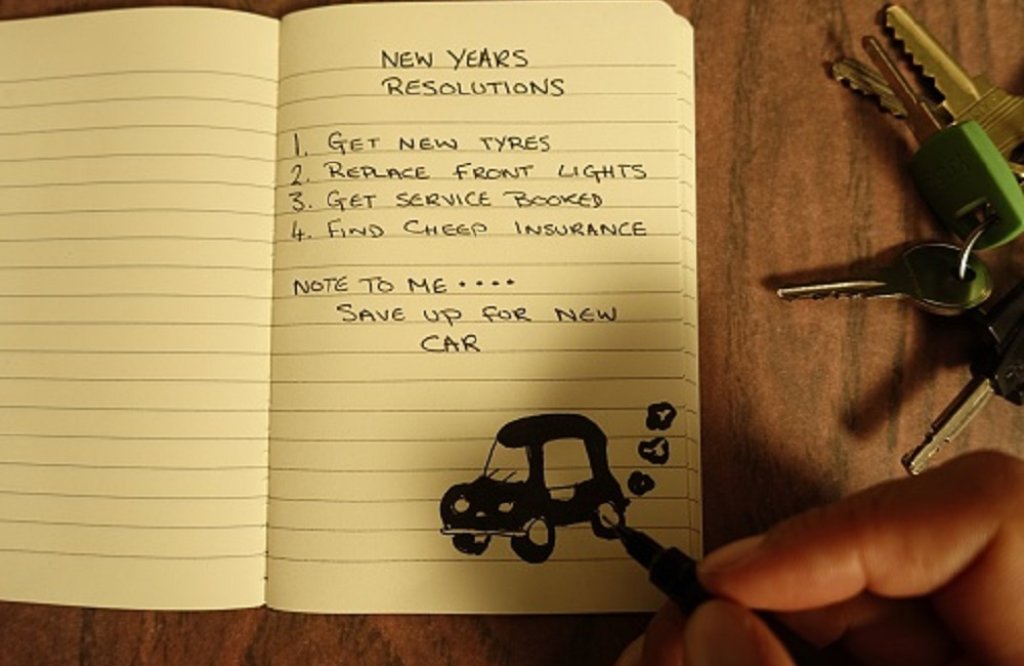 NEW YEARS
RESOLUTIONS
1. GET NEW TYRES
2. REPLACE FRONT LIGHTS
3. GET SERVICE BOOKED
4. FIND CHEEP INSURANCE
NOTE TO ME ....
SAVE UP FOR NEW
CAR